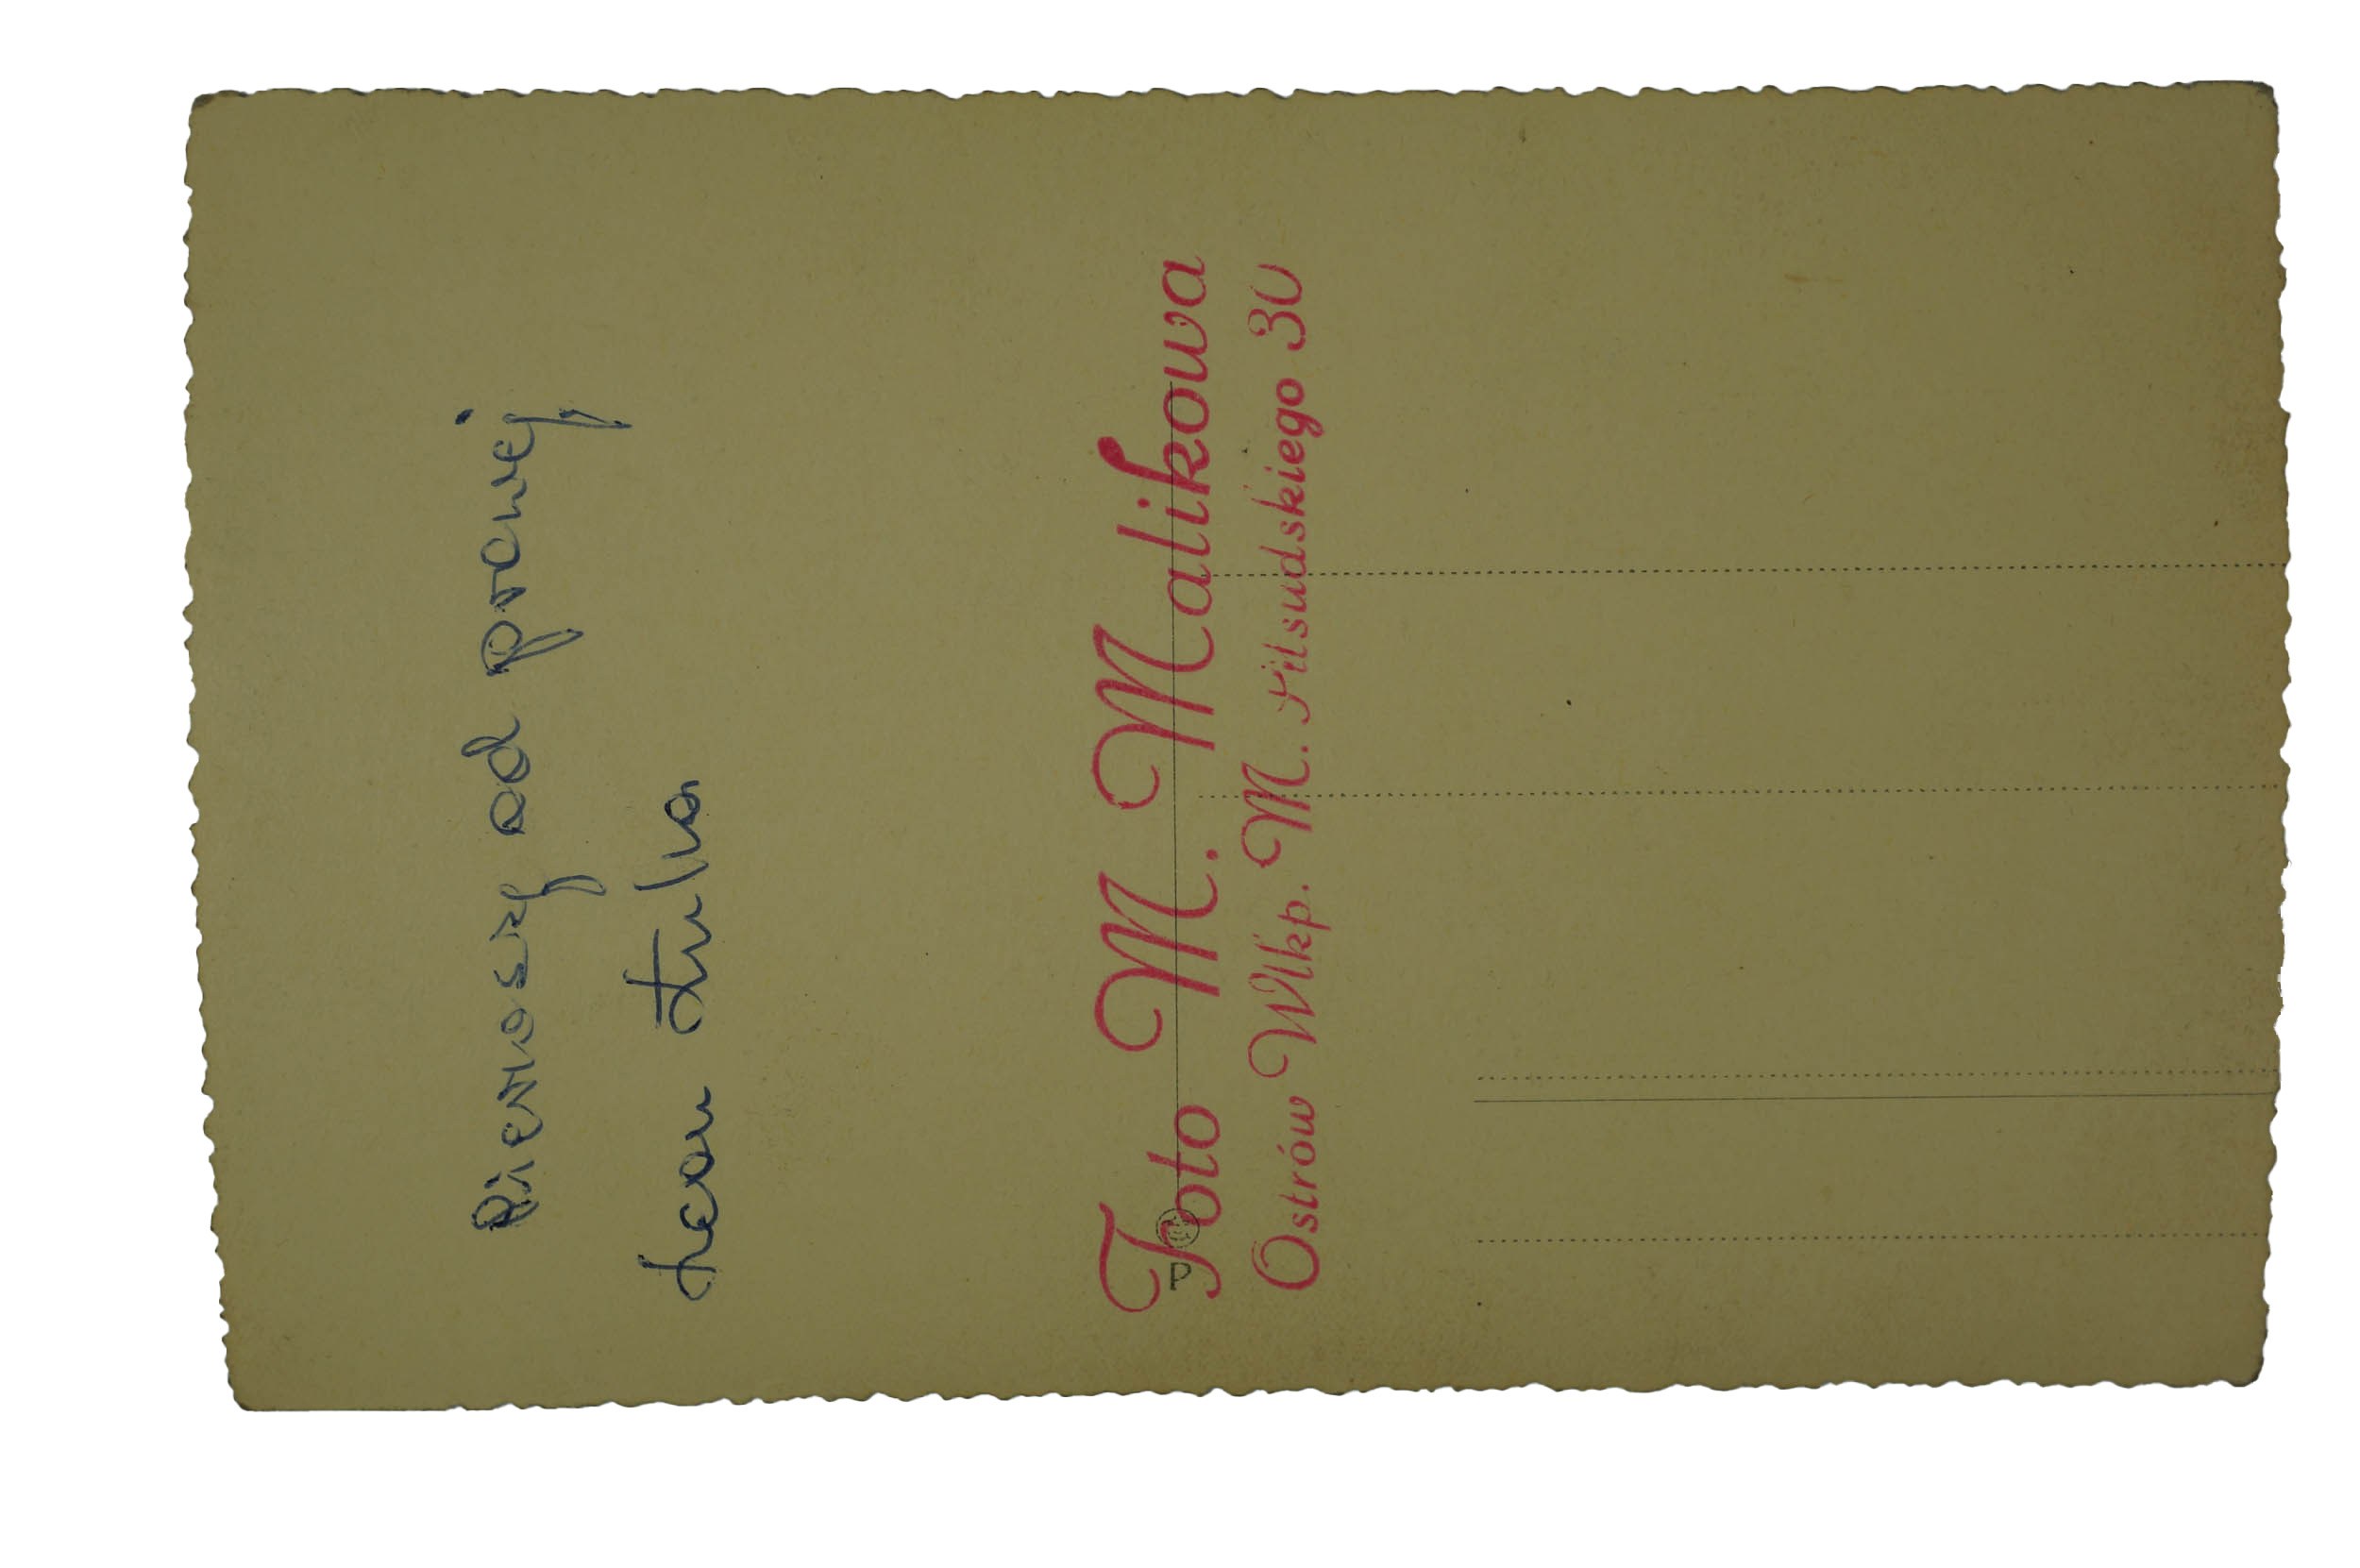 Pierwszy od prawej
Leon
Foto M. Malikowa
Ostrów Wlkp. M. Piłsudskiego 30
P